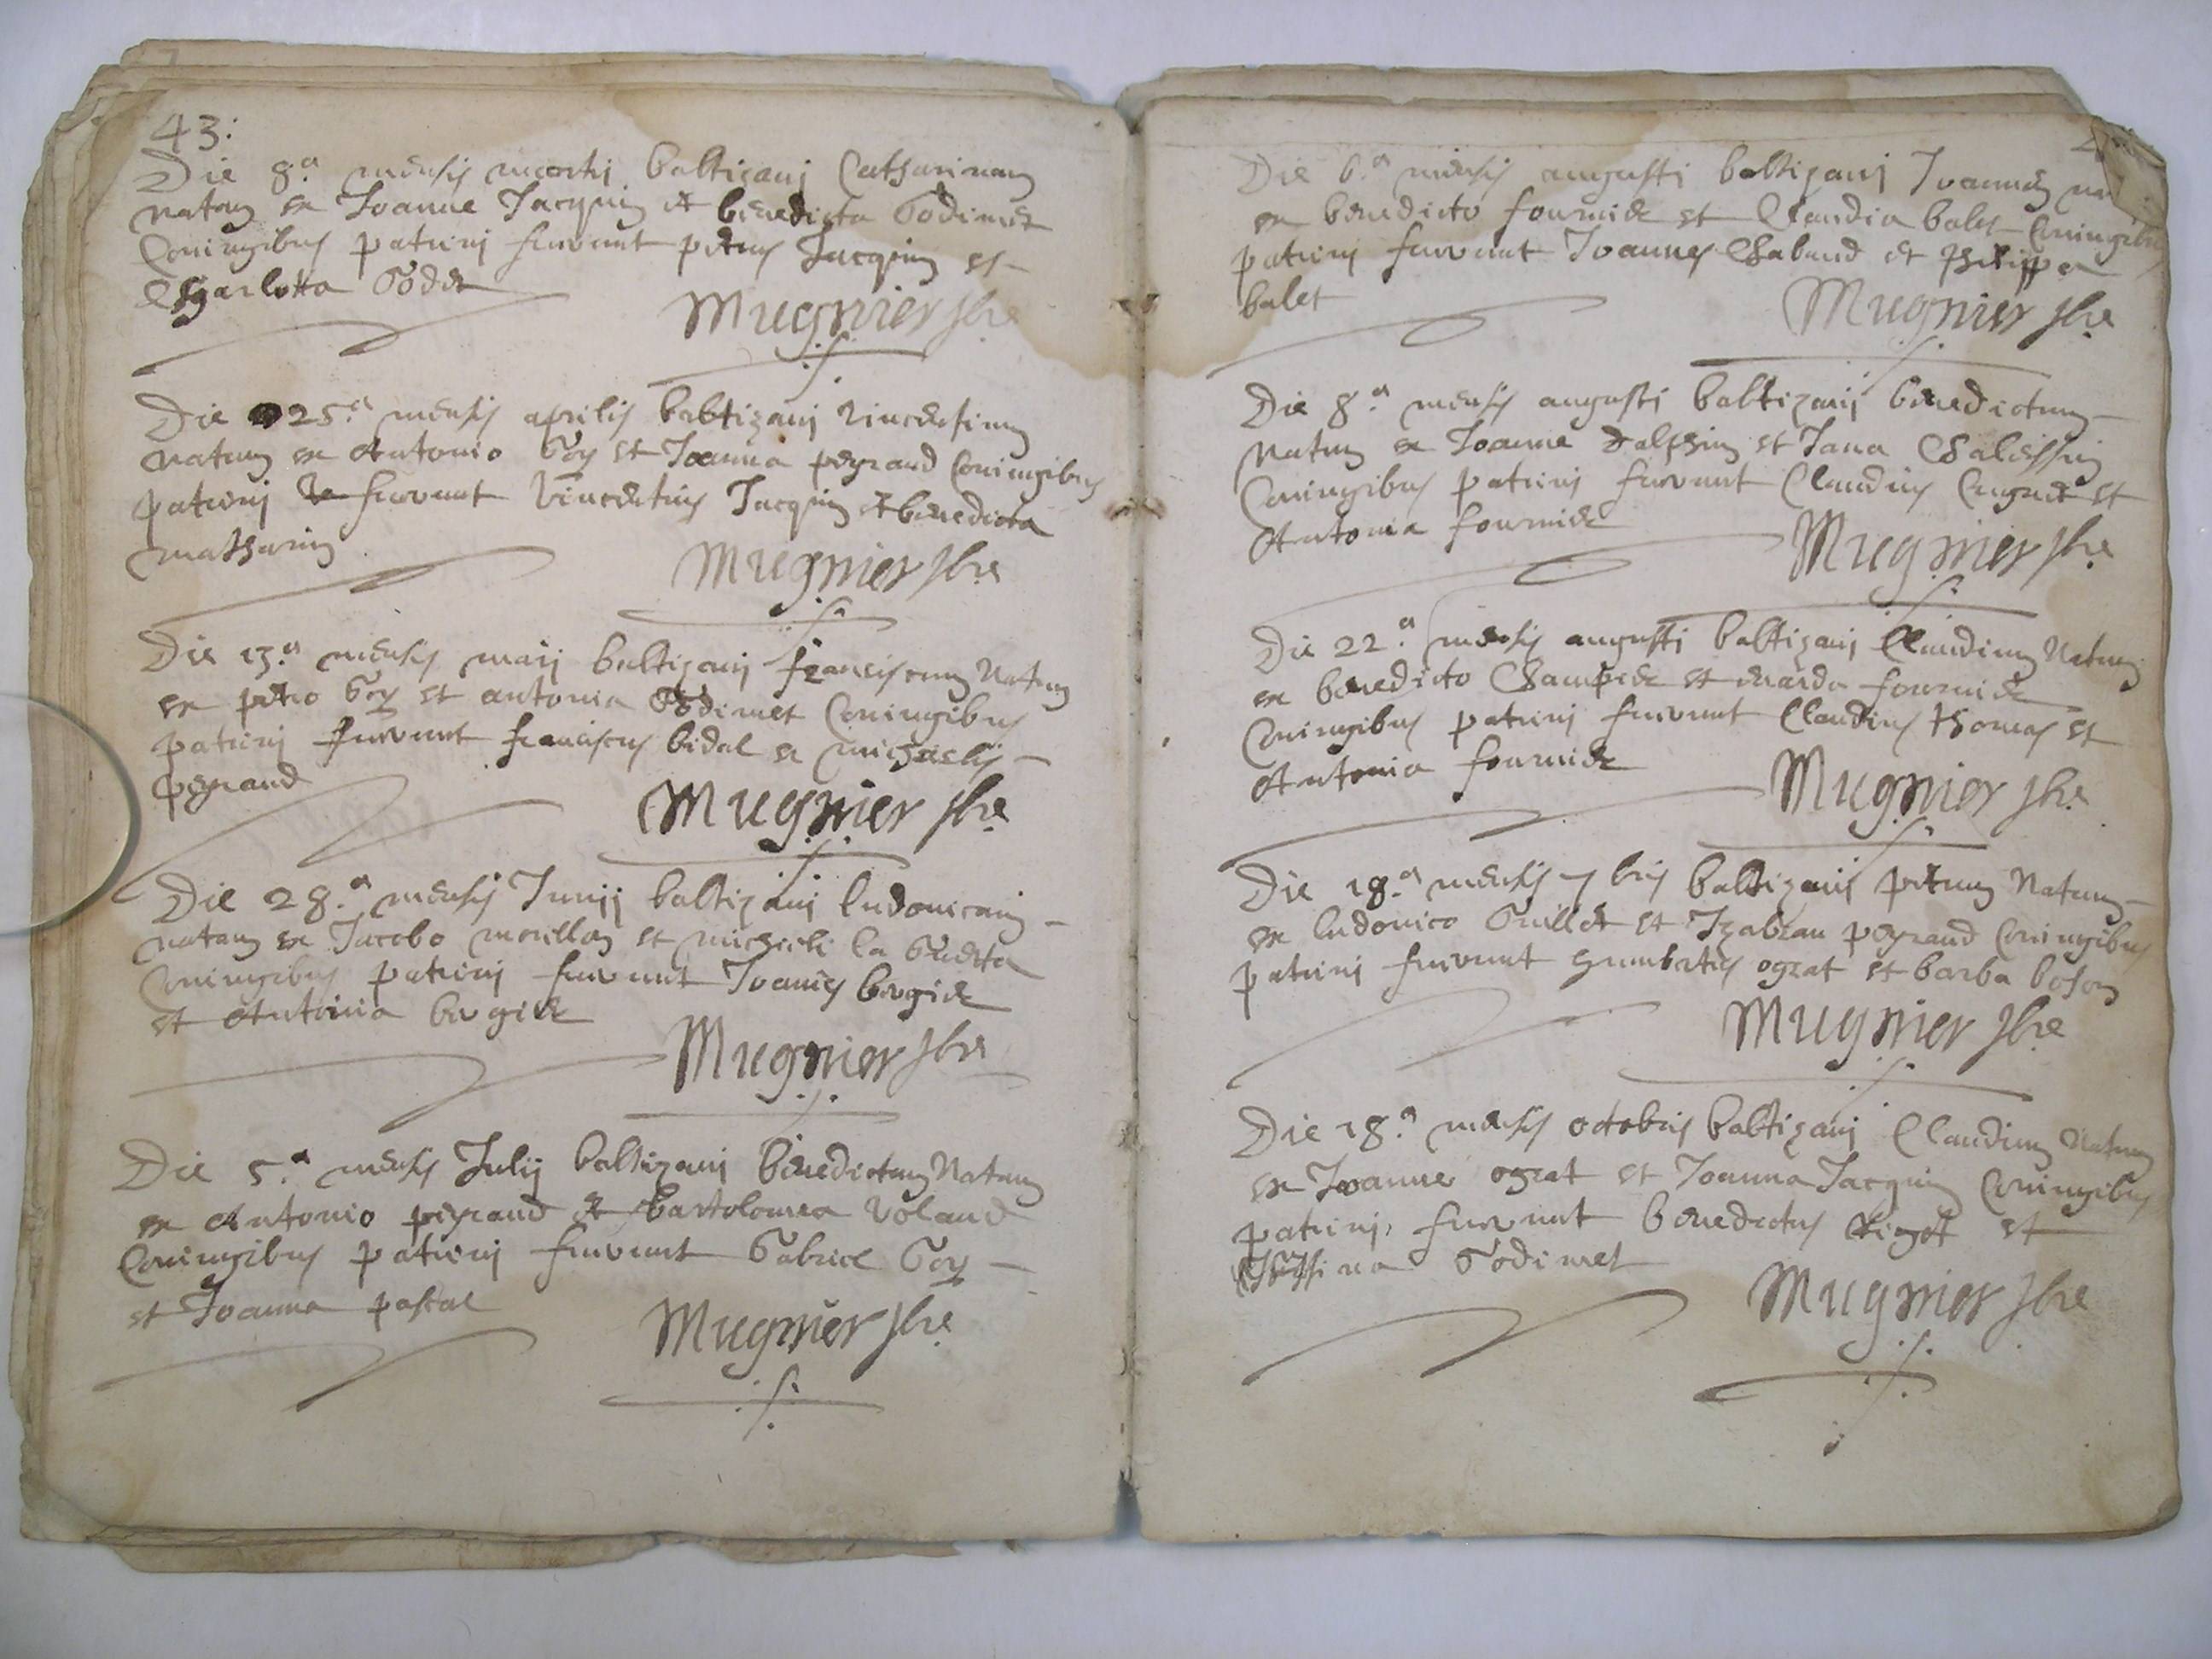 43:
Die 8.a mensis martij baltizavi Catharinam
natam ex Joanne Jacquin et benedicta Godimet
Coniugibus patrini fuerunt petrus Jacquin et
Charlotta Godet
Mugnier pbre
Die 25.a mensis aprilis babtizavi vincentium
natum ex Antonio Goy et Joanna peyraud Coniugibus
patrini fuerunt vincentius Jacquin et benedicta
matharin
Mugnier pbre
Die 13.a mensis maij baltizavi franciscum Natum
ex petro Goy et antonia Godimet Coniugibus
patrini fuerunt franciscus bidal et michaelis
peyraud
Mugnier pbre
Die 28.a mensis Junij baltizavi ludovicam
natam ex Jacobo morillon et michaeli la
Coniugibus patrini fuerunt Joannes bergier
et Antonia bergier
Mugnier pbre
Die 5.a mensis Julij baltizavi benedictum Natum
ex Antonio peyraud et bartolomea voland
Coniugibus patrini fuerunt Gabriel Goy
et Joanna pascal
Mugnier pbre
Die 6.a mensis augusti baltizavi Joannem
ex benedicto fournier et Claudia balet Coniugibus
patrini fuerunt Joannes Chabaud et philippa
balet
Mugnier pbre
Die 8.a mensis augusti baltizavi benedictum
Natum ex Joanne dalphin et Jana
Coniugibus patrini fuerunt Claudius Cugnet et
Antonia fournier
Mugnier pbre
Die 22.a mensis augusti baltizavi Claudium Natum
ex benedicto Champier et fournier
Coniugibus patrini fuerunt Claudius thomas et
Antonia fournier
Mugnier pbre
Die 18.a mensis 7bris baltizavi petrum Natum
ex ludovico Grillet et Izabeau peyraud Coniugibus
patrini fuerunt humbertus ogzat et barba boson
Mugnier pbre
Die 18.a mensis octobris baltizavi Claudium Natum
ex Joanne ogzat et Joanna Jacquin Coniugibus
patrini fuerunt benedictus et
Godimet
Mugnier pbre